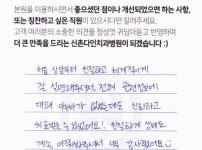 본원을 이용하시면서 좋으셨던 점이나 개선되었으면 하는 사항,
또는 칭찬하고 싶은 직원이 있으시다면 알려주세요.
고객 여러분의 소중한 의견을 정성껏 귀담아듣고 반영하여
더 큰 만족을 드리는 신촌다인치과병원이 되겠습니다 :)
처음 상담부터 친절하고 체계적이게
잘 설명해주셔서, 전혀 근관치료에
대해 아는바가 없었는데도 안심하고
치료받을 수 있었어요! 친절하게 상대해
계속, 걱정해주셔서 너무 감사했어요 ~~